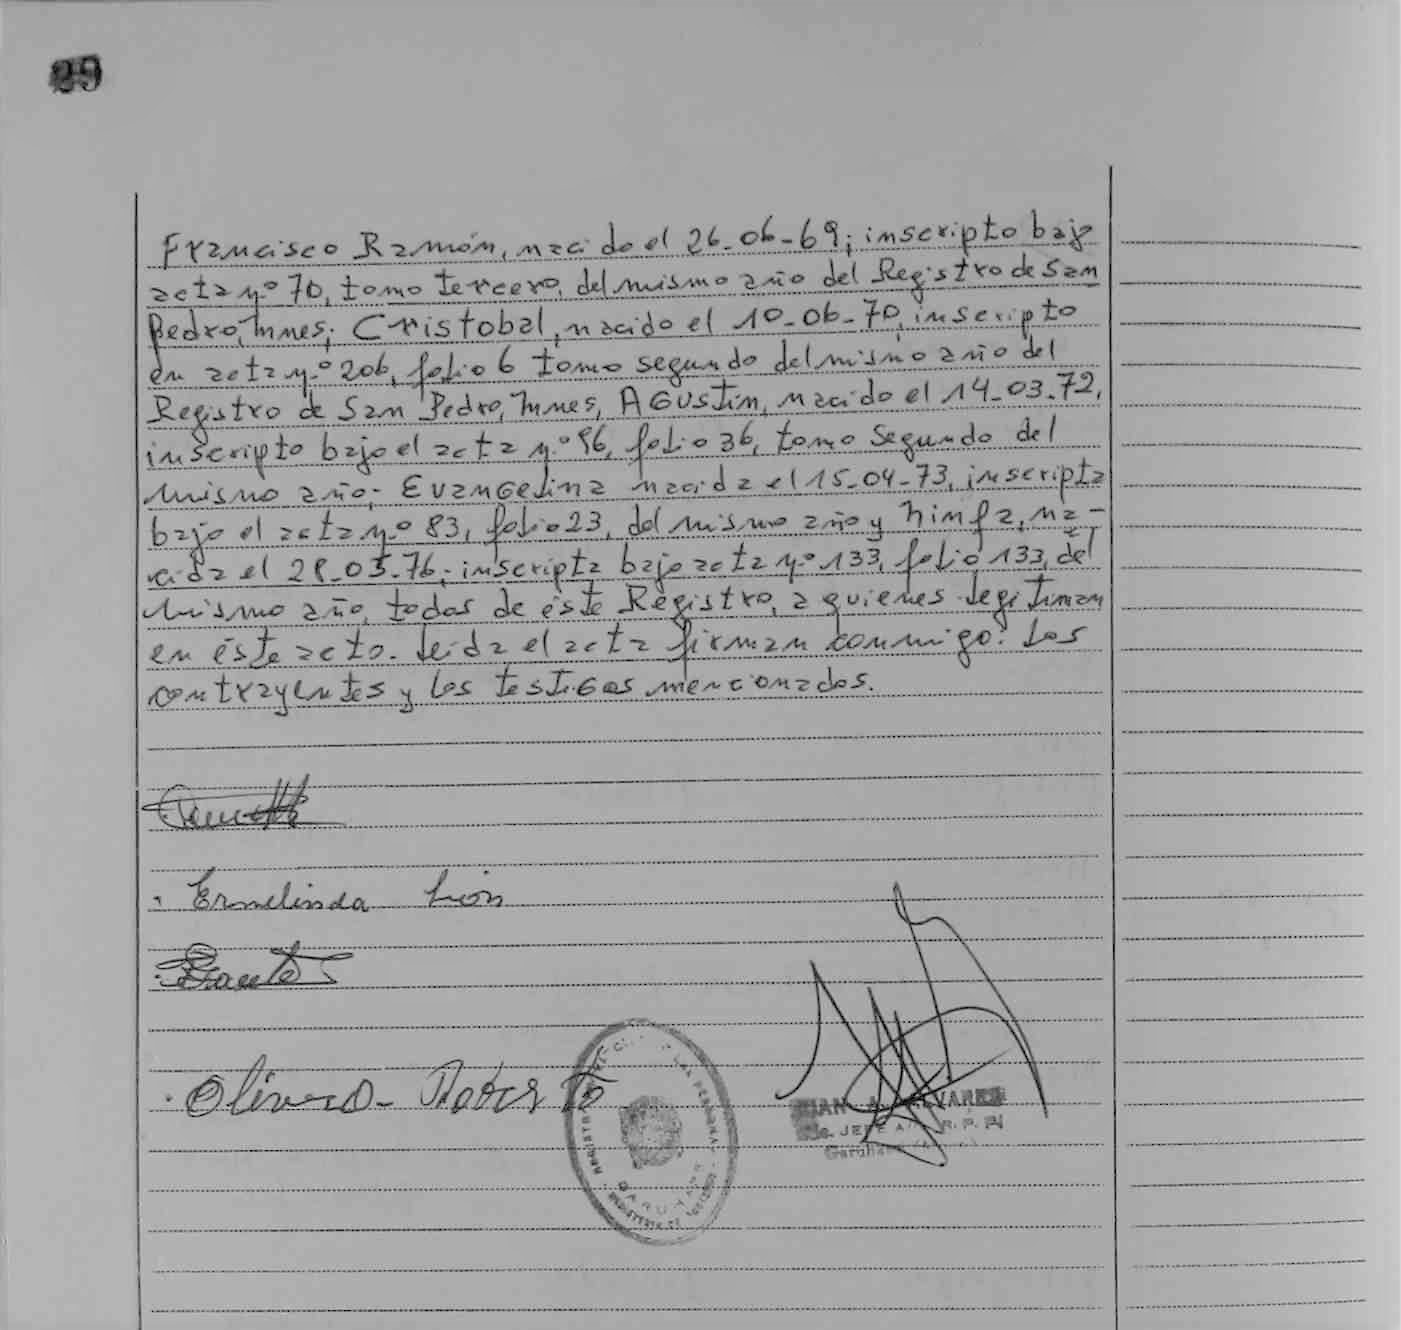 89
Francisco Ramón, nacido el 26-06-69; inscripto bajo
acta n.º 70, tomo tercero, del mismo año del Registro de San
Pedro, Mnes; Cristobal, nacido el 10-06-70, inscripto
en acta n.º 206, folio 6 tomo segundo del mismo año del
Registro de San Pedro, Mnes, AGUSTIN, nacido el 14-03-72,
inscripto bajo el acta n.º 96, folio 36, tomo Segundo del
mismo año; EvanGelina nacida el 15-04-73, inscripta
bajo el acta n.º 83, folio 23, del mismo año y Ninfa, na-
cida el 28-05-76; inscripta bajo acta n.º 133, folio 133, del
mismo año, todos de éste Registro, a quienes legitiman
en éste acto. Leída el acta firman conmigo: Los
contrayentes y los testigos mencionados.
Ermelinda León
Olivera - Roberto
REGISTRO LAS PERSONAS
GARUHAPE
JUAN A. ALVAREZ
JEFE R. P. P.
Garuhape